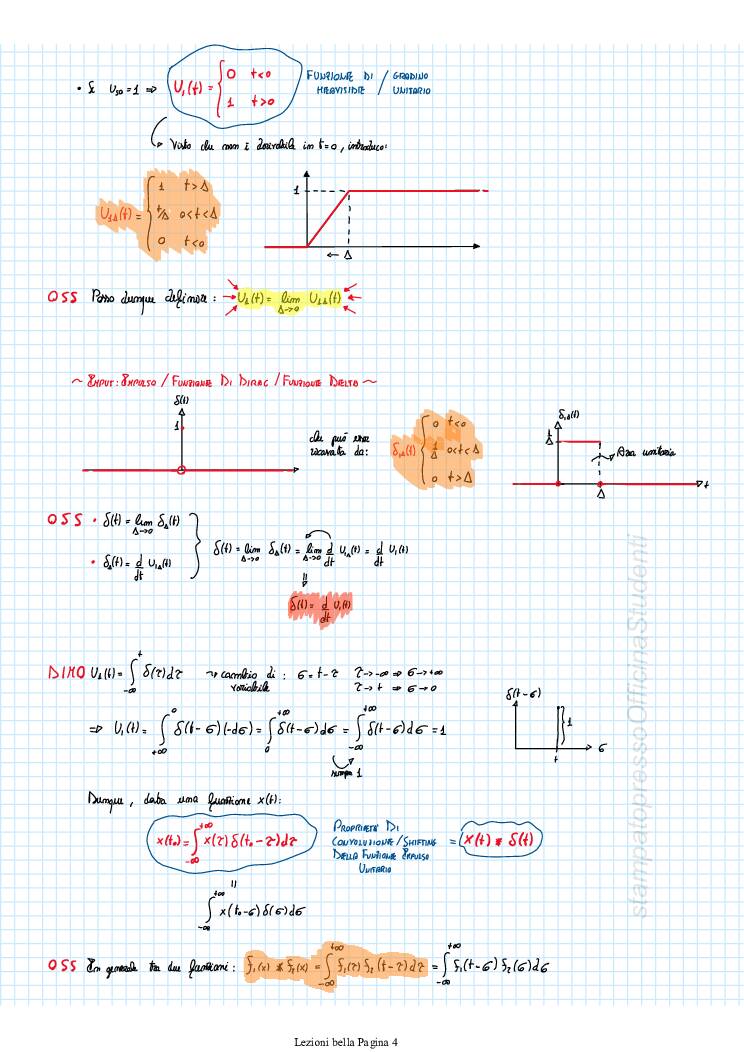 • Se U₁₀ = 1 ⇒ U₁(t) = { 0 t<0 ; 1 t>0 FUNZIONE DI HEAVISIDE / GRADINO UNITARIO
↳ Visto che non è derivabile in t=0, introduco:
U₁Δ(t) = { 1 t>Δ ; t/Δ 0<t<Δ ; 0 t<0
1
← Δ
OSS Posso dunque definire: U₁(t) = lim Δ→0 U₁Δ(t)
~ INPUT: IMPULSO / FUNZIONE DI DIRAC / FUNZIONE DELTA ~
δ(t)
1
che può essere ricavata da: δΔ(t) { 0 t<0 ; 1/Δ 0<t<Δ ; 0 t>Δ
δΔ(t)
1/Δ
Area unitaria
Δ
t
OSS • δ(t) = lim Δ→0 δΔ(t)
• δΔ(t) = d/dt U₁Δ(t)
δ(t) = lim Δ→0 δΔ(t) = lim Δ→0 d/dt U₁Δ(t) = d/dt U₁(t)
⇓
δ(t) = d/dt U₁(t)
DIMO U₁(t) = ∫_{-∞}^{t} δ(τ)dτ → cambio di variabile : σ = t-τ τ→-∞ ⇒ σ→+∞
τ→t ⇒ σ→0
⇒ U₁(t) = ∫_{+∞}^{0} δ(t-σ)(-dσ) = ∫_{0}^{+∞} δ(t-σ)dσ = ∫_{-∞}^{+∞} δ(t-σ)dσ = 1
sempre 1
δ(t-σ)
1
t
σ
Dunque, data una funzione x(t):
x(t₀) = ∫_{-∞}^{+∞} x(τ)δ(t₀-τ)dτ PROPRIETÀ DI CONVOLUZIONE/SHIFTING DELLA FUNZIONE IMPULSO UNITARIO = x(t) * δ(t)
=
∫_{-∞}^{+∞} x(t₀-σ)δ(σ)dσ
OSS In generale tra due funzioni: f₁(x) * f₂(x) = ∫_{-∞}^{+∞} f₁(τ) f₂(t-τ)dτ = ∫_{-∞}^{+∞} f₁(t-σ) f₂(σ)dσ
stampatopressoOfficinaStudenti
Lezioni bella Pagina 4